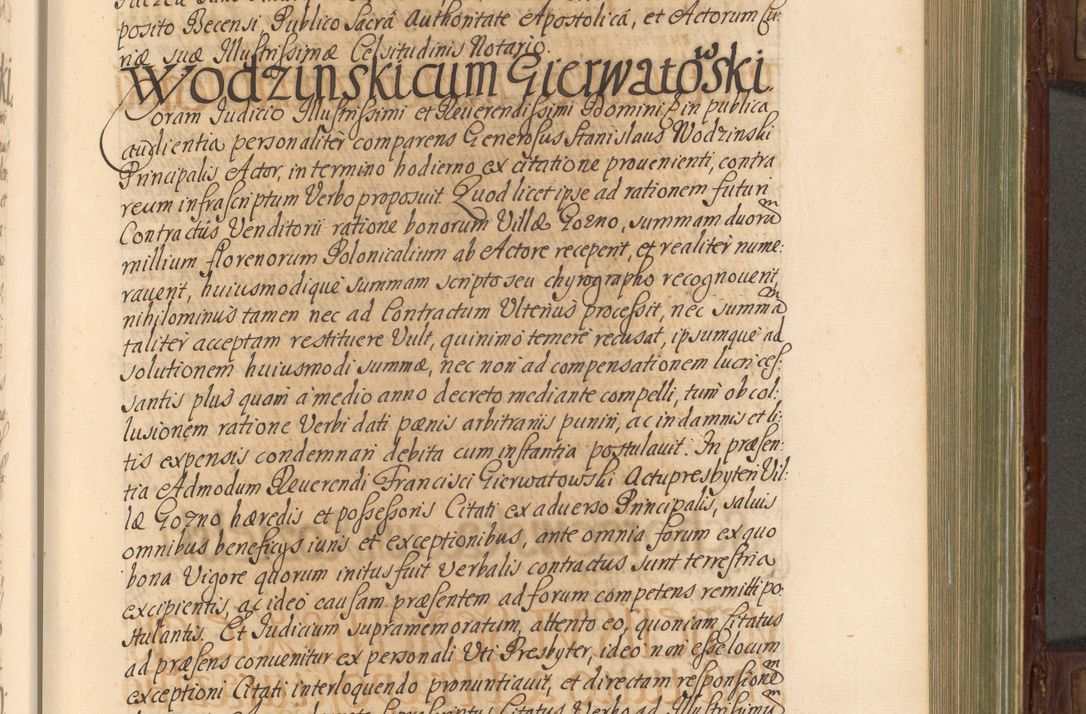 posito Becensi Publico Sacrâ Authoritate Apostolicâ, et Actorum Cu:
riæ suæ Illustrissimæ Celsitudinis Notario.
Wodzinski cum Gierwatowski
Coram Judicio Illustrissimi et Reuerendissimi Domini in publica
audientia personaliter comparens Generosus Stanislaus Wodzinski
Principalis Actor, in termino hodierno ex citatione prouenienti, contra
reum infrascriptum Verbo proposuit. Quod licet ipse ad rationem futuri
Contractûs Venditorii ratione bonorum Villæ Gozno, summam duorũ
millium florenorum Polonicalium ab Actore receperit, et realiter nume:
rauerit, huiusmodique summam scripto seu chyrographo recognouerit,
nihilominus tamen nec ad Contractum Ulterius processit, nec summã
taliter acceptam restituere Vult, quinimo temere recusat, ipsumque ad
solutionem huiusmodi summæ, nec non ad compensationem lucri ces:
santis plus quam à medio anno decreto mediante compelli, tum ob col:
lusionem ratione Verbi dati pænis arbitrariis puniri, ac in damnis et li:
tis expensis condemnari debita cum instantia postulauit. In præsen:
tia Admodum Reuerendi Francisci Gierwatowski Actupresbyteri Vil:
læ Gozno hæredis et possessoris Citati ex aduerso Principalis, saluis
omnibus beneficys iuris et exceptionibus, ante omnia forum ex quo
bona Vigore quorum initus fuit Verbalis contractus sunt terrestria
excipientis, ac ideo causam præsentem ad forum competens remitti po:
stulantis. Et Judicium supramemoratum, attento eo, quoniam Citatus
ad præsens conuenitur ex personali Uti Presbyter, ideo non esse locum
exceptioni Citati interloquendo pronuntiauit, et directam responsionẽ